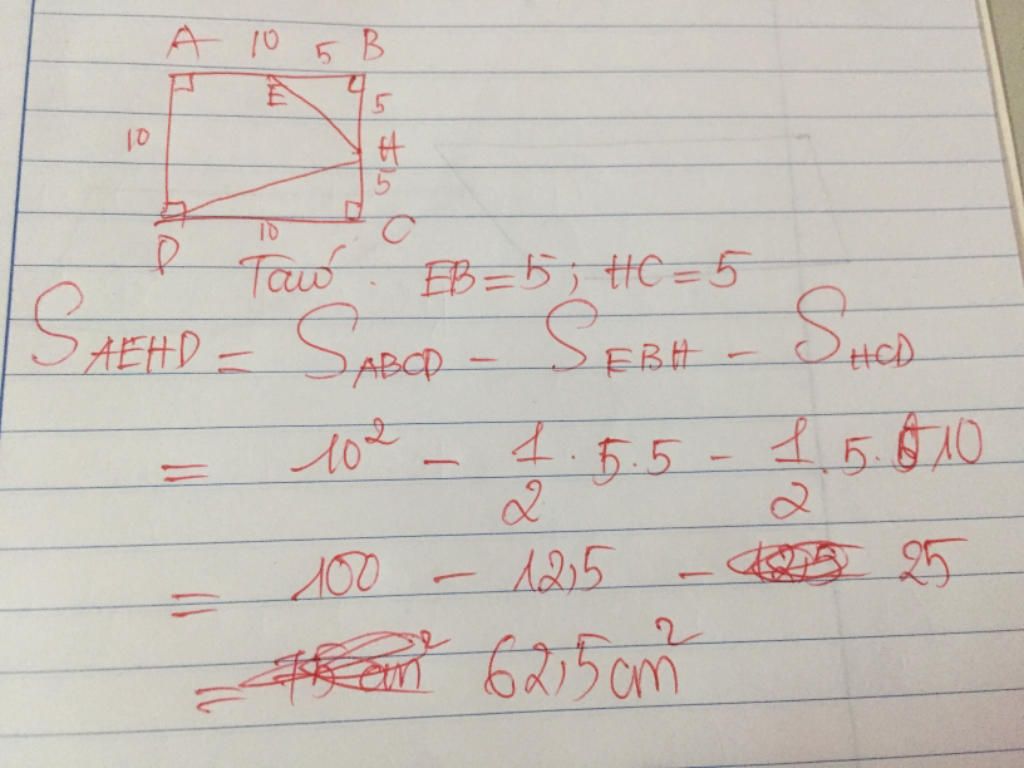 A 10 5 B
E 5
10 H
5
10 C
D Ta có EB = 5 ; HC = 5
S AEHD = S ABCD - S EBH - S HCD
= 10² - 1/2 . 5.5 - 1/2 . 5. 10
= 100 - 12,5 - 12,5 25
= 75 cm² 62,5 cm²